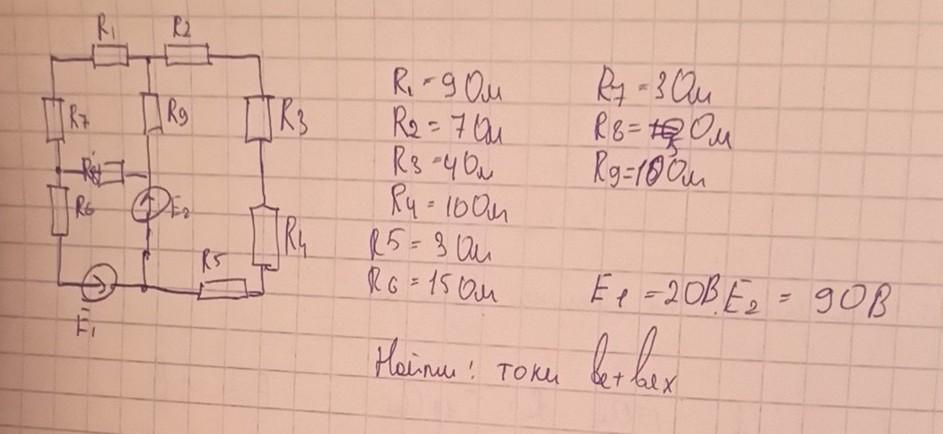 R1 R2
R7 R9 R3
R8
R6 E2 R4
R5
E1
R1 = 9 Ом
R2 = 7 Ом
R3 = 4 Ом
R4 = 10 Ом
R5 = 3 Ом
R6 = 15 Ом
R7 = 3 Ом
R8 = Ом
R9 = Ом
E1 = 20В. E2 = 90В
Найти: токи